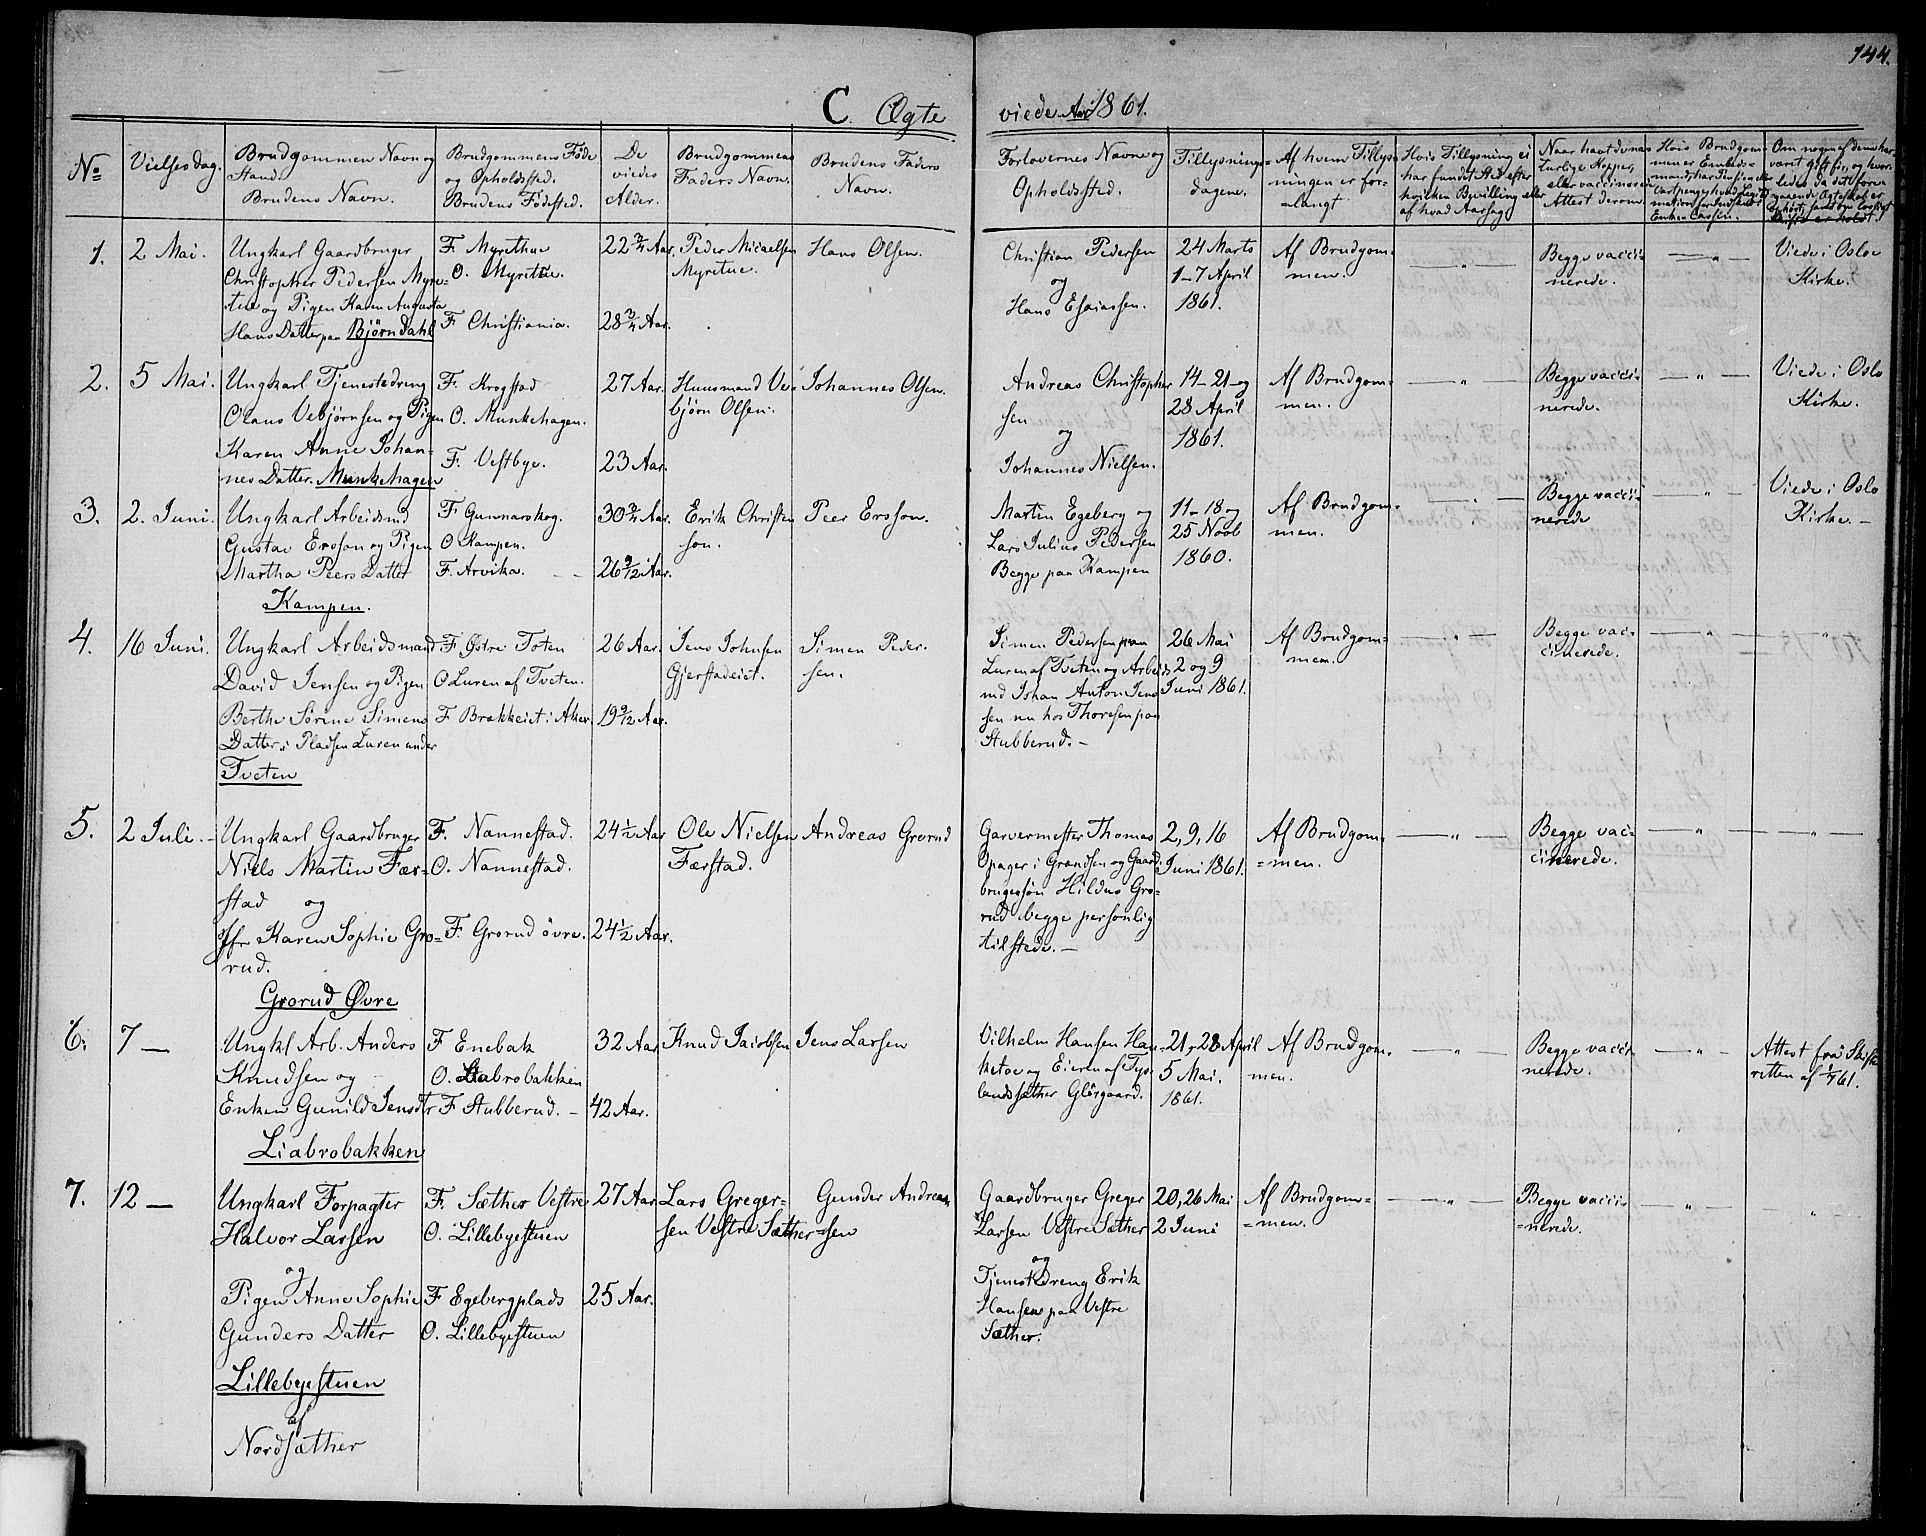 144.
C. Ægte viede Aar 1861.
No
Vielsesdag.
Brudgommen Navn og
Stand.
Brudens Navn.
Brudgommens Føde
og Opholdssted.
Brudens Fødested.
De
viedes
Alder.
Brudgommens
Faders Navn.
Brudens Faders
Navn.
Forlovernes Navne og
Opholdssted.
Tillysnings=
dagene.
Af hvem Tillys-
ningen er for-
=langt
Hvis Tillysning ei
har fundet Sted efter
hvilken Bevilling eller
af hvad Aarsag.
Naar havt de dnas
turlige Kopper,
eller vaccineret
Attest derom.
Hvis Brudgom-
men er Embeds-
mand, har Pension eller
Enken Cassen.
Om nogen af dem har
været gift før, og hvor-
ledes da det fore-
gaaende Ægteskab er
ophørt, samt om lovligt
Skifte er holdt.
1.
2 Mai.
Ungkarl Gaardbruger
Christopher Pedersen Myre-
tue og Pigen Karen Augusta
Hans Datter paa Bjørndahl
F. Myrethue
O. Myretue.
F. Christiania.
22 3/4 Aar.
28 3/4 Aar.
Peder Micaelsen
Myretue.
Hans Olsen.
Christian Pedersen
og
Hans Esaiassen.
24 Marts
1-7 April
1861.
Af Brudgom-
men.
— " —
Begge vacci-
nerede.
— " —
Viede i Oslo
Kirke.
2.
5 Mai.
Ungkarl Tjenestedreng
Olaus Vebjørnsen og Pigen
Karen Anne Johan-
nes Datter. Munkehagen
F. Krogstad
O. Munkehagen.
F. Vestbye.
27 Aar.
23 Aar.
Huusmand Ve-
bjørn Olsen.
Johannes Olsen.
Andreas Christopher
sen
og
Johannes Nielsen.
14-21-og
28 April
1861.
Af Brudgom-
men.
— " —
Begge vacci-
nerede.
— " —
Viede i Oslo
Kirke.
3.
2. Juni.
Ungkarl Arbeidsmd
Gustav Ersson og Pigen
Martha Peers Datter
Kampen.
F. Gunnarskog.
O. Kampen.
F. Arvika.
30 3/4 Aar.
26 9/12 Aar.
Erik Christen
son.
Peer Ersson.
Martin Egeberg og
Lars Julius Pedersen
Begge paa Kampen
11-18 og
25 Novb
1860.
Af Brudgom-
men.
— " —
Begge vacci-
nerede
— " —
Viede i Oslo
Kirke. —
4.
16 Juni.
Ungkarl Arbeidsmand
David Jensen og Pigen
Berthe Sørine Simens
Datter, i Pladsen Luren under
Tveten
F. Østre Toten
O Luren af Tveten.
F Brækkeiet i Aker.
26 Aar.
19 9/12 Aar.
Jens Johnsen
Gjerstadeiet.
Simen Peder-
sen.
Simen Pedersen paa
Luren af Tveten og Arbeids
md Johan Anton Jens
sen nu hos Thoresen paa
Stubberud. —
26 Mai
2 og 9
Juni 1861.
Af Brudgom=
men.
— " —
Begge vac-
cinerede.
— " —
— " —
5.
2 Juli. —
Ungkarl Gaardbruger
Niels Martin Fær-
stad og
Jfr Karen Sophie Gro=
rud.
Grorud Øvre
F. Nannestad.
O. Nannestad.
F. Grorud øvre.
24 1/2 Aar
24 1/2 Aar.
Ole Nielsen
Færstad.
Andreas Grorud
Garvermester Thomas
Opager i Grændsen og Gaard
brugessøn Hildus Gro-
rud begge personlig
tilstede. —
2, 9, 16
Juni 1861.
Af Brudgom=
=men.
— " —
Begge vac-
cinerede.
— " —
— " —
6.
7 —
Ungkl Arb. Anders
Knudsen og
Enken Gunild Jensdtr
Liabrobakken
F Enebak
O. Liabrobakken
F Stubberud. —
32 Aar
42 Aar.
Knud Jacobsen
Jens Larsen
Vilhelm Hansen Han-
ketoe og Eieren af Tys-
landssæther Glörgaard.
21, 28 April
5 Mai.
1861.
Af Brudgom-
men.
— " —
Begge vacci-
nerede.
— " —
Attest fra Skifte
retten af 1/7 61.
7.
12 —
Ungkarl Forpagter
Halvor Larsen
og
Pigen Anne Sophie
Gunders Datter
Lillebyestuen
af
Nordsæther
F. Sæther Vestre
O. Lillebyestuen
F Egebergplads
O. Lillebyestuen
27 Aar
25 Aar.
Lars Greger-
sen Vestre Sæther
Gunder Andreas
=sen
Gaardbruger Greger
Larsen Vestre Sæther
og
Tjenestdreng Erik
Hansens paa Vestre
Sæther.
20, 26 Mai
2 Juni
Af Brudgom-
=men.
— " —
Begge vacci-
=nerede.
— " —
"